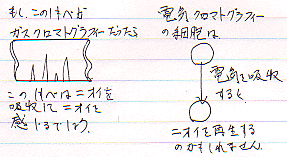 もし、このけいが
ガスクロマトグラフィーだったら
このけいはニオイを
吸収してニオイを
感じるでしょう。
電気クロマトグラフィー
の細胞は
電気を吸収
すると
ニオイを再生する
のかもしれません。